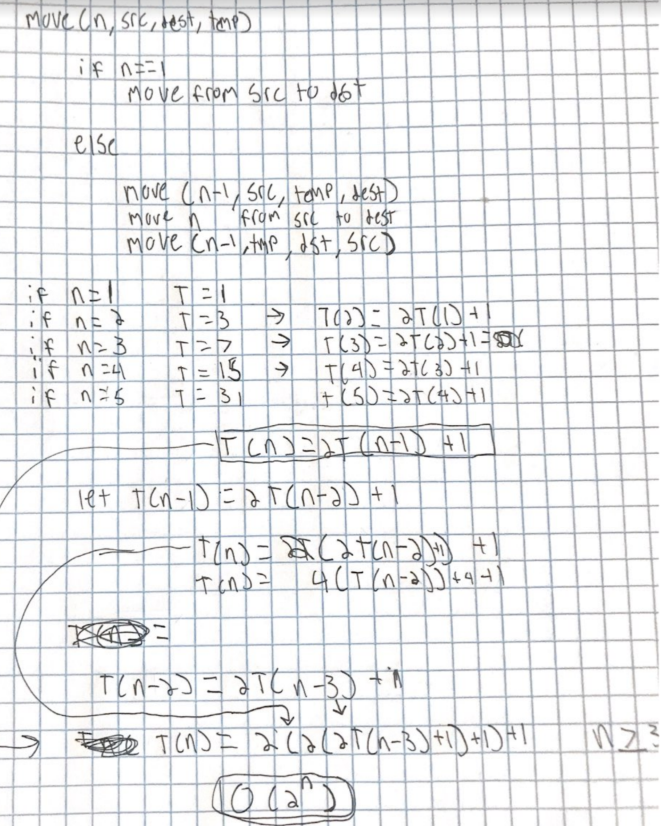 move (n, src, dest, tmp)
if n==1
move from src to dst
else
move (n-1, src, temp, dest)
move n from src to dest
move (n-1, tmp, dst, src)
if n=1 T=1
if n=2 T=3 → T(2)= 2T(1)+1
if n=3 T=7 → T(3)=2T(2)+1=
if n=4 T=15 → T(4)=2T(3)+1
if n=5 T=31 t(5)=2T(4)+1
T(n)=2T(n-1)+1
let T(n-1)=2T(n-2)+1
T(n)= 2(2T(n-2)+1)+1
T(n)= 4(T(n-2))+4+1
=
T(n-2)=2T(n-3)+1
→ T(n)= 2(2(2T(n-3)+1)+1)+1 n≥3
O(2^n)